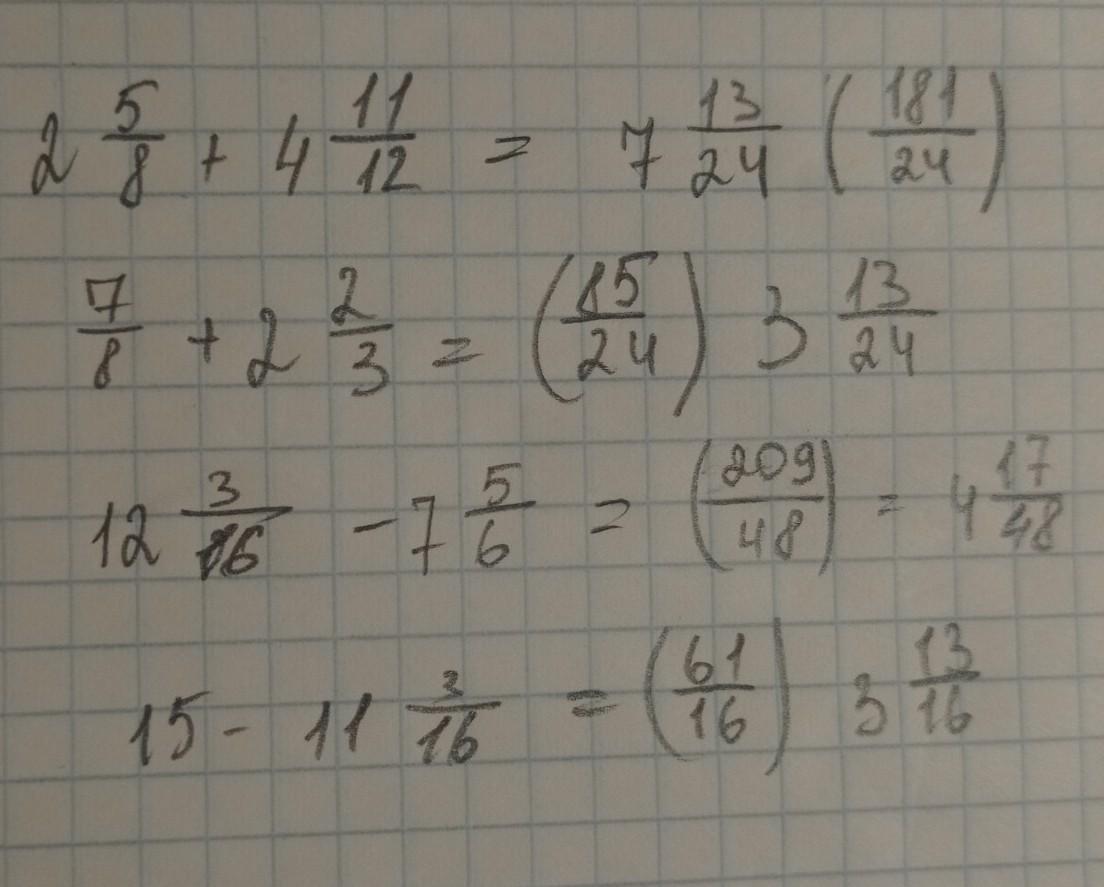 2 5/8 + 4 11/12 = 7 13/24 (181/24)
7/8 + 2 2/3 = (85/24) 3 13/24
12 3/16 - 7 5/6 = (209/48) = 4 17/48
15 - 11 3/16 = (61/16) 3 13/16